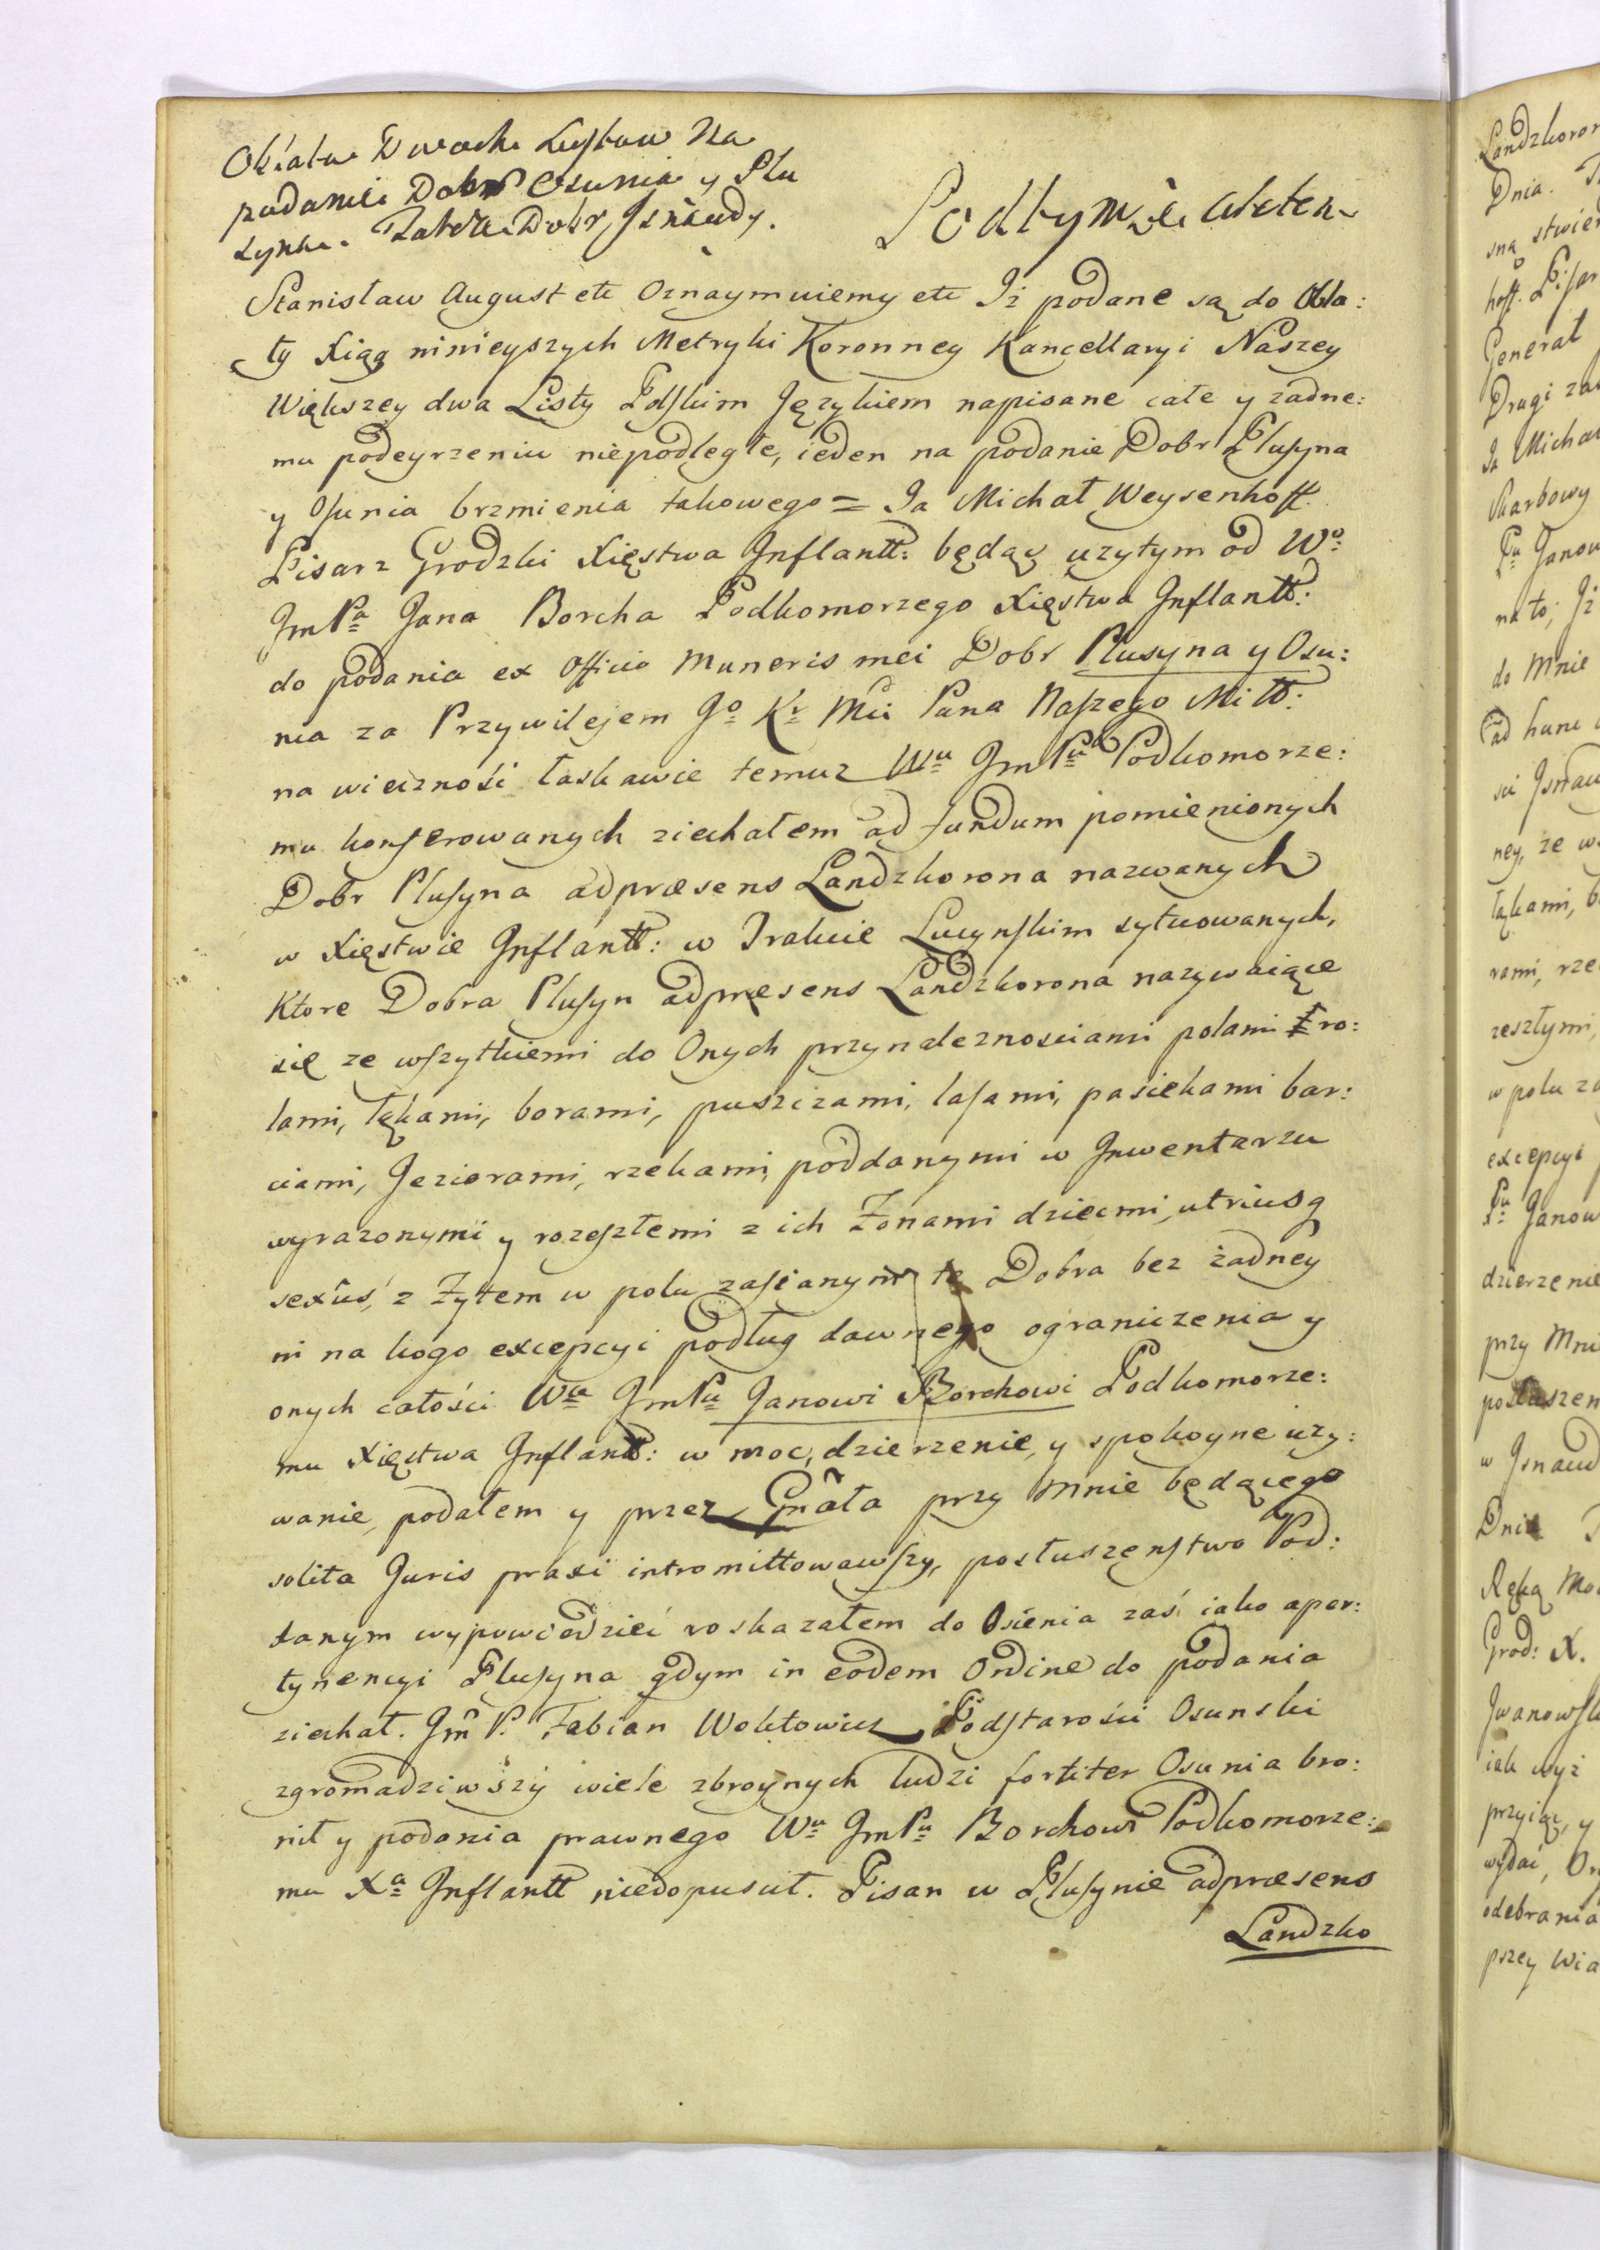 Oblata Dwoch Listow Na
podanie Dobr Osunia y Plu
syna. Także Dobr Isnaudy.
Podtymże aktem
Stanisław August etc Oznaymuiemy etc Iż podane są do Obla:
ty Xiąg ninieyszych Metryki Koronney Kancellaryi Naszey
Większey dwa Listy Polskim Językiem napisane całe y zadne:
mu podeyrzeniu niepodległe, ieden na podanie Dobr Plusyna
y Osunia brzmienia takowego = Ja Michał Weysenhoff
Pisarz Grodzki Xięstwa Inflantt: będąc uzytym od Wo:
JmPa Jana Borcha Podkomorzego Xięstwa Inflantt:
do podania ex Officio Muneris mei Dobr Plusyna y Osu:
nia za Przywilejem Jo Kr Mci Pana Naszego Miłł:
na wieczności łaskawie temuz Wu JmPu Podkomorze:
mu konferowanych ziechałem ad fundum pomienionych
Dobr Plusyna adpræsens Landzkorona nazwanych
w Xięstwie Inflantt: w Trakcie Lucynskim sytuowanych,
Ktore Dobra Plusyn adpræsens Landzkorona nazywaiące
się ze wszytkiemi do Onych przynaleznosciami polami ro:
lami, łąkami, borami, puszczami, lasami, pasiekami bar:
ciami, Jeziorami, rzekami, poddanymi w Inwentarzu
wyrazonymi y rozeszłemi z ich Żonami dziecmi, utriusq
sexus, z Żytem w polu zasianym te Dobra bez żadney
ni na kogo excepcyi podług dawnego ograniczenia y
onych całości Wu JmPu Janowi Borchowi Podkomorze:
mu Xięstwa Inflantt: w moc, dzierzenie, y spokoyne uzy:
wanie, podałem y przez Gnâła przy mnie będącego
solita Juris praxi intromittowawszy, posłuszenstwo Pod:
danym wypowiedzieć roskazałem do Osienia zaś iako aper:
tynencyi Plusyna gdym in eodem Ordine do podania
ziechał. Jm P. Fabian Wołłowicz Podstarości Osunski
zgromadziwszy wiele zbroynych ludzi fortiter Osunia bro:
nił y podania prawnego Wu JmPu Borchowi Podkomorze:
mu Xa Inflantt niedopuscił. Pisan w Plusynie adpræsens
Landzko